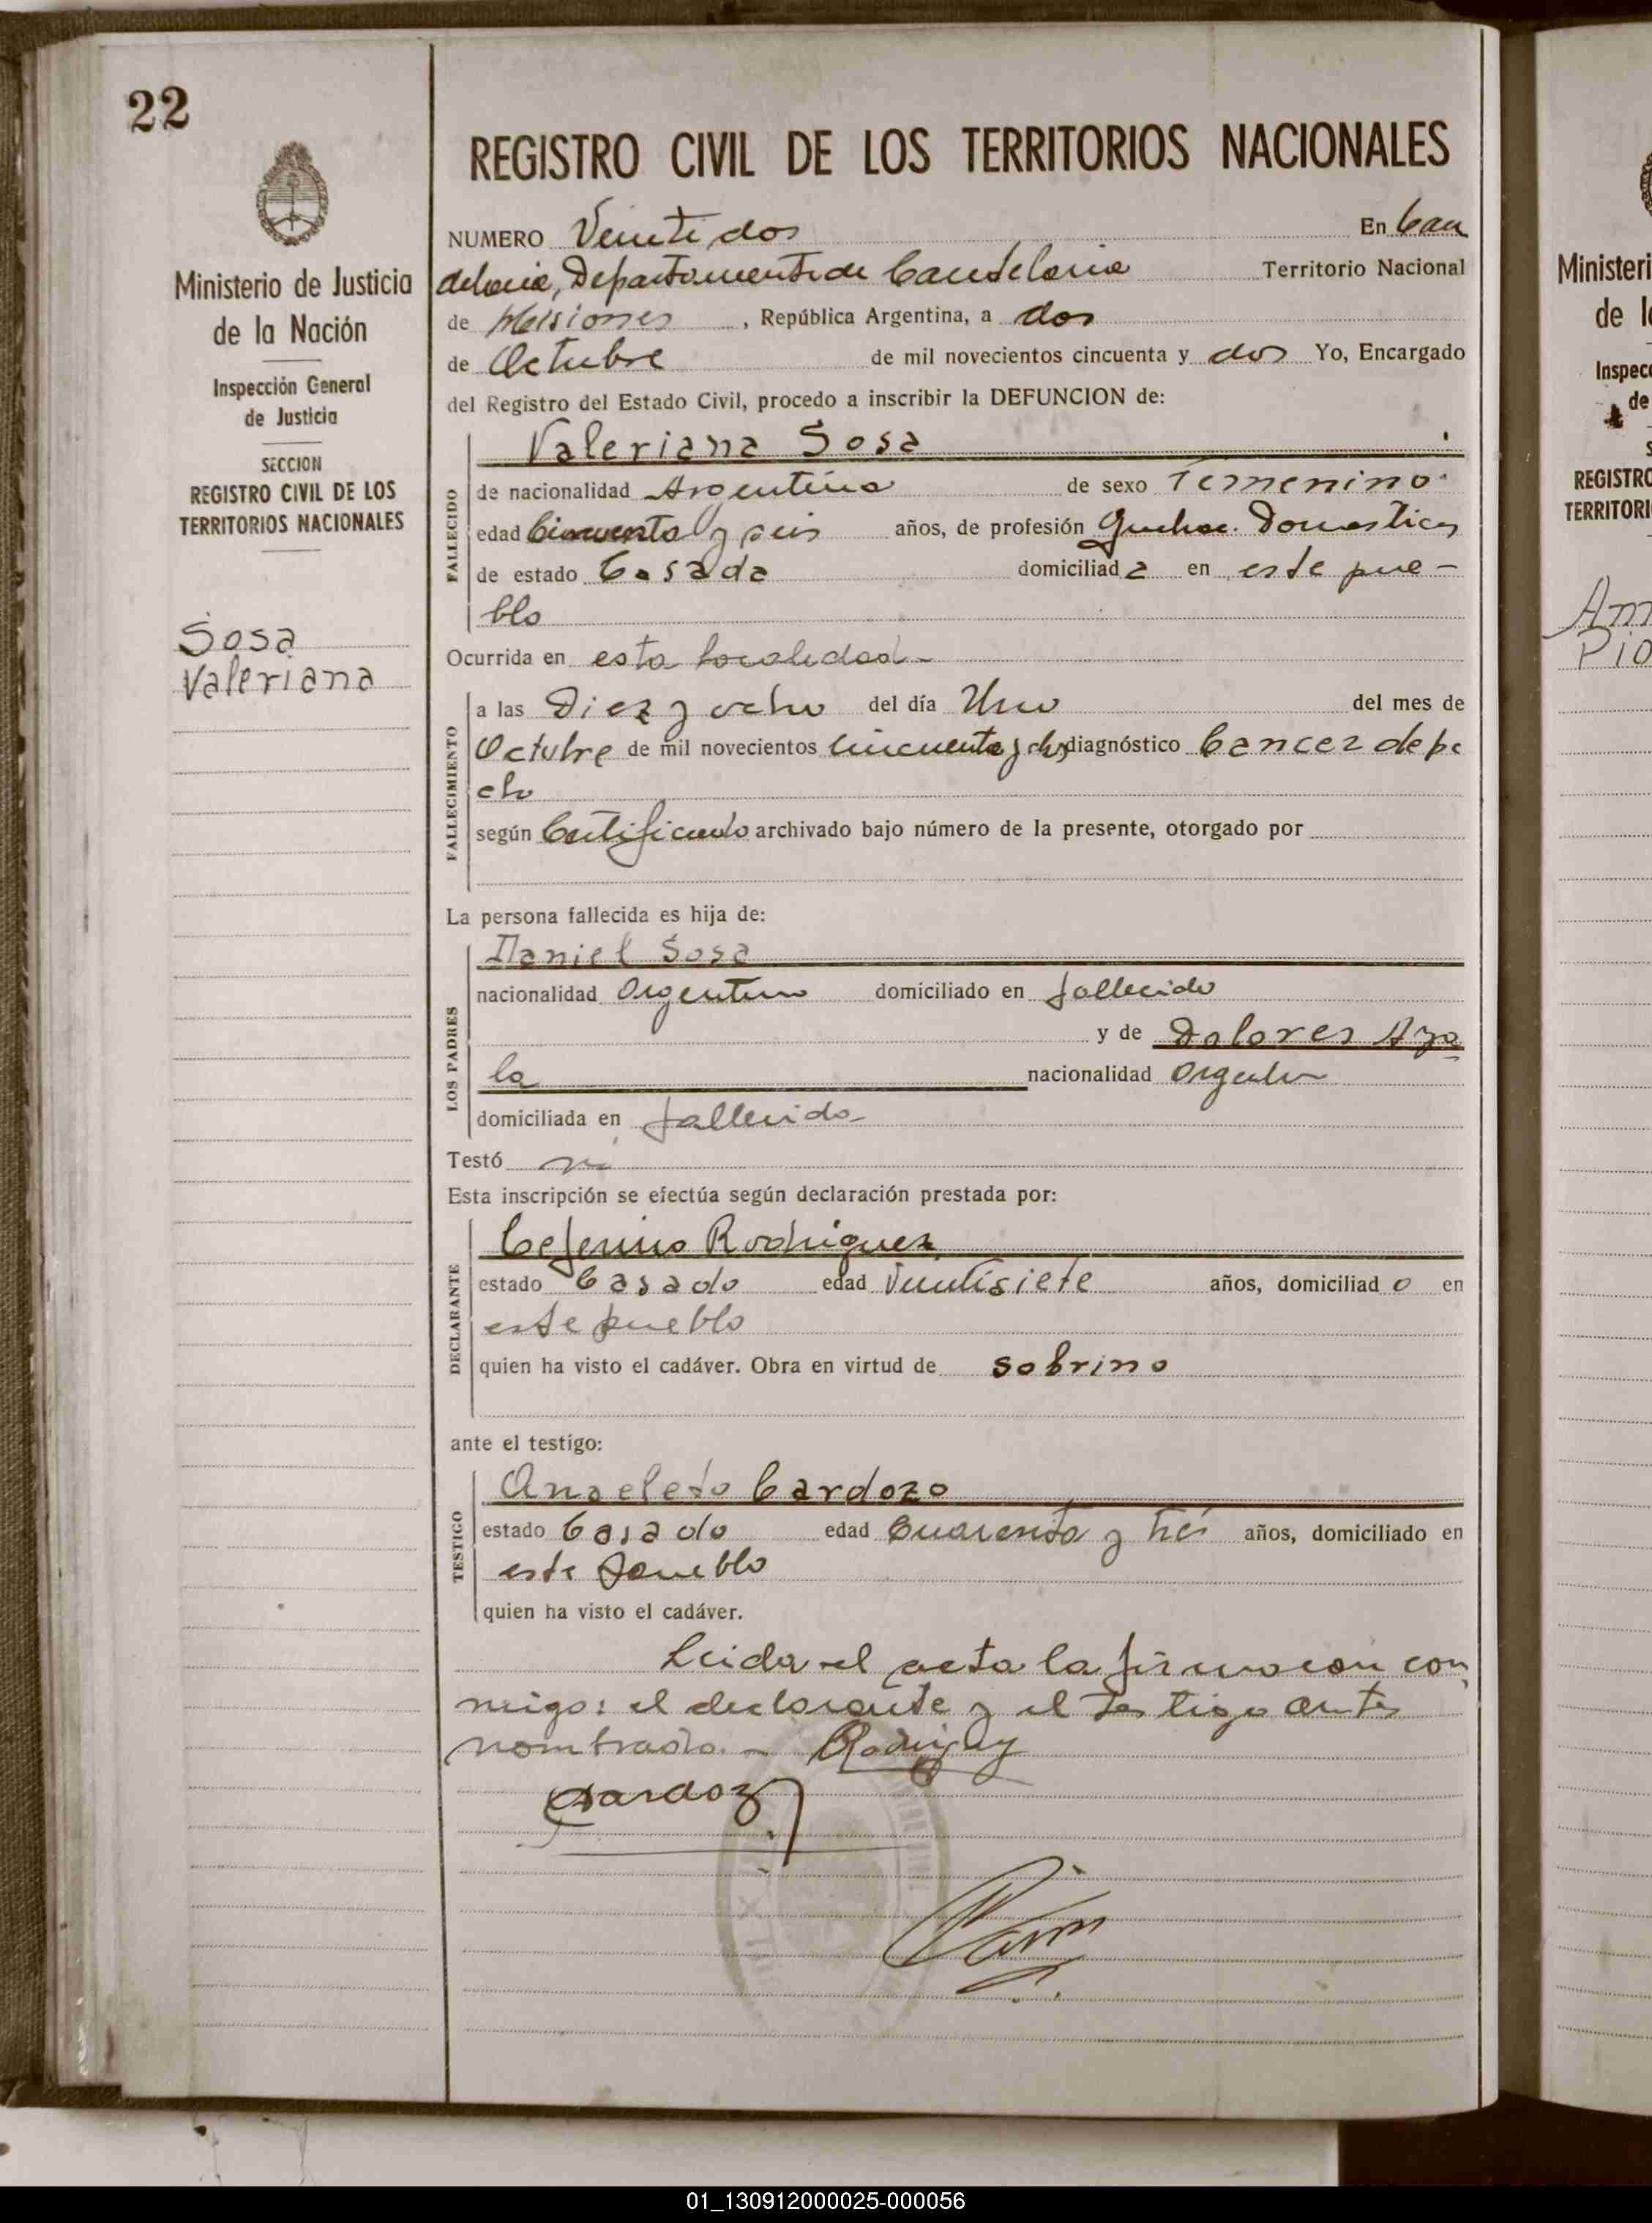 22
Ministerio de Justicia
de la Nación
Inspección General
de Justicia
SECCION
REGISTRO CIVIL DE LOS
TERRITORIOS NACIONALES
Sosa
Valeriana
REGISTRO CIVIL DE LOS TERRITORIOS NACIONALES
NUMERO Veinti dos En Can
delaria, Departamento de Candelaria Territorio Nacional
de Misiones, República Argentina, a dos
de Octubre de mil novecientos cincuenta y dos Yo, Encargado
del Registro del Estado Civil, procedo a inscribir la DEFUNCION de:
Valeriana Sosa
FALLECIDO
de nacionalidad Argentina de sexo Femenino
edad Cincuenta y seis años, de profesión Domesticos
de estado Casada domiciliada en este pue-
blo
Ocurrida en esta localidad-
FALLECIMIENTO
a las Diez y ocho del día Uno del mes de
Octubre de mil novecientos cincuenta y dos diagnóstico Cancer de pe
cho
según Certificado archivado bajo número de la presente, otorgado por
La persona fallecida es hija de:
LOS PADRES
Daniel Sosa
nacionalidad Argentino domiciliado en fallecido
y de Dolores Aya
la nacionalidad
domiciliada en fallecida
Testó
Esta inscripción se efectúa según declaración prestada por:
DECLARANTE
Ceferino Rodriguez
estado Casado edad Veintisiete años, domiciliado en
este pueblo
quien ha visto el cadáver. Obra en virtud de sobrino
ante el testigo:
TESTIGO
Anacleto Cardozo
estado Casado edad Cuarenta y tres años, domiciliado en
este pueblo
quien ha visto el cadáver.
Leida el acta la firmaron con
migo: el declarante y el testigo antes
nombrado.-
Ministeri
de l
Inspec
de
S
REGISTRO
TERRITORI
Am
Pio
01_130912000025-000056